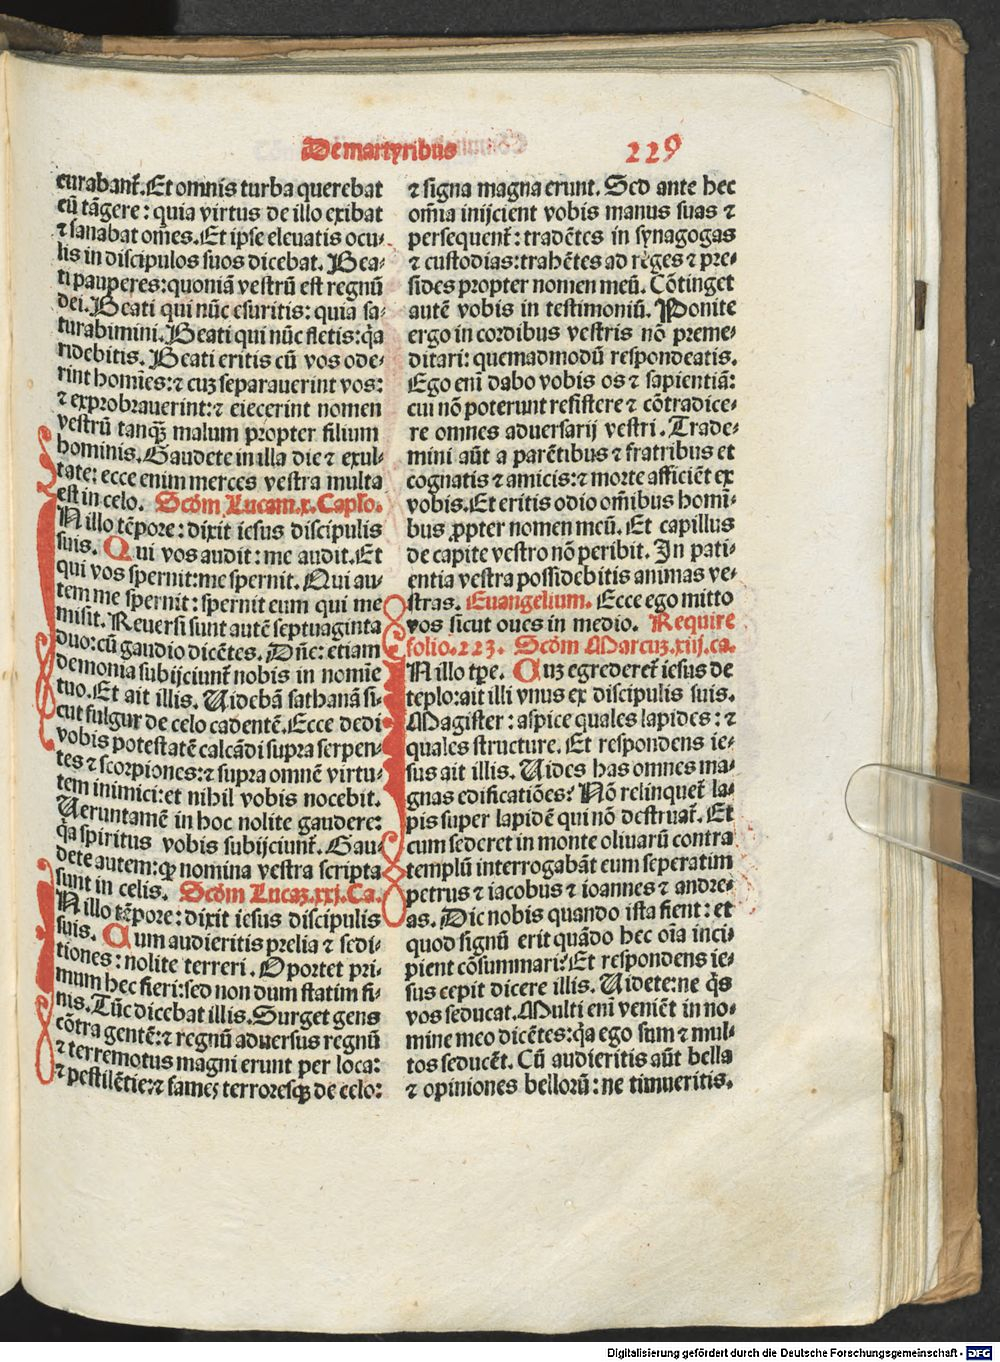 De martyribus
229
curabant᷑. Et omnis turba querebat
cū tāgere: quia virtus de illo exibat
⁊ sanabat om̄es. Et ipse eleuatis ocu⸗
lis in discipulos suos dicebat. Bea⸗
ti pauperes: quoniā vestrū est regnū
dei. Beati qui nūc esuritis: quia sa⸗
turabimini. Beati qui nūc fletis: q̇a
ridebitis. Beati eritis cū vos ode⸗
rint homīes: ⁊ cuꝫ separauerint vos:
⁊ exprobrauerint: ⁊ eiecerint nomen
vestrū tanqꝫ̄ malum propter filium
hominis. Gaudete in illa die ⁊ exul⸗
tate: ecce enim merces vestra multa
est in celo. Scd̓m Lucam.x. Capl̓o.
IN illo tēpore: dixit iesus discipulis
suis. Qui vos audit: me audit. Et
qui vos spernit: me spernit. Qui au⸗
tem me spernit: spernit eum qui me
misit. Reuersi sunt autē septuaginta
duo: cū gaudio dicētes. Dn̄e: etiam
demonia subijciunt᷑ nobis in nomīe
tuo. Et ait illis. Uidebā sathanā si⸗
cut fulgur de celo cadentē. Ecce dedi
vobis potestatē calcādi supra serpen⸗
tes ⁊ scorpiones: ⁊ supra omnē virtu⸗
tem inimici: et nihil vobis nocebit.
Ueruntamē in hoc nolite gaudere:
q̇a spiritus vobis subijciunt᷑. Gau⸗
dete autem: ꝙ nomina vestra scripta
sunt in celis. Scd̓m Lucaꝫ.xxj. Ca.
IN illo tēpore: dixit iesus discipulis
suis. Cum audieritis prelia ⁊ sedi⸗
tiones: nolite terreri. Oportet pri⸗
mum hec fieri: sed non dum statim fi⸗
nis. Tūc dicebat illis. Surget gens
cōtra gentē: ⁊ regnū aduersus regnū
⁊ terremotus magni erunt per loca:
⁊ pestilētie: ⁊ fames terroresqꝫ de celo:
⁊ signa magna erunt. Sed ante hec
om̄ia inijcient vobis manus suas ⁊
persequent᷑: tradētes in synagogas
⁊ custodias: trahētes ad reges ⁊ pre⸗
sides propter nomen meū. Cōtinget
autē vobis in testimoniū. Ponite
ergo in cordibus vestris nō preme⸗
ditari: quemadmodū respondeatis.
Ego enī dabo vobis os ⁊ sapientiā:
cui nō poterunt resistere ⁊ cōtradice⸗
re omnes aduersarij vestri. Trade⸗
mini aūt a parētibus ⁊ fratribus et
cognatis ⁊ amicis: ⁊ morte afficiēt ex
vobis. Et eritis odio om̄ibus homī⸗
bus ꝓpter nomen meū. Et capillus
de capite vestro nō peribit. In pati⸗
entia vestra possidebitis animas ve⸗
stras. Euangelium. Ecce ego mitto
vos sicut oues in medio. Require
folio.223. Scd̓m Marcuꝫ.xiij.ca.
IN illo tp̄e. Cuꝫ egrederet᷑ iesus de
tēplo: ait illi vnus ex discipulis suis.
Magister: aspice quales lapides: ⁊
quales structure. Et respondens ie⸗
sus ait illis. Uides has omnes ma⸗
gnas edificatiōes? Nō relinquet᷑ la⸗
pis super lapidē qui nō destruat᷑. Et
cum sederet in monte oliuarū contra
templū interrogabāt eum seperatim
petrus ⁊ iacobus ⁊ ioannes ⁊ andre⸗
as. Dic nobis quando ista fient: et
quod signū erit quādo hec oīa inci⸗
pient cōsummari? Et respondens ie⸗
sus cepit dicere illis. Uidete: ne q̇s
vos seducat. Multi enī veniēt in no⸗
mine meo dicētes: q̇a ego sum ⁊ mul⸗
tos seducēt. Cū audieritis aūt bella
⁊ opiniones bellorū: ne timueritis.
Digitalisierung gefördert durch die Deutsche Forschungsgemeinschaft - DFG